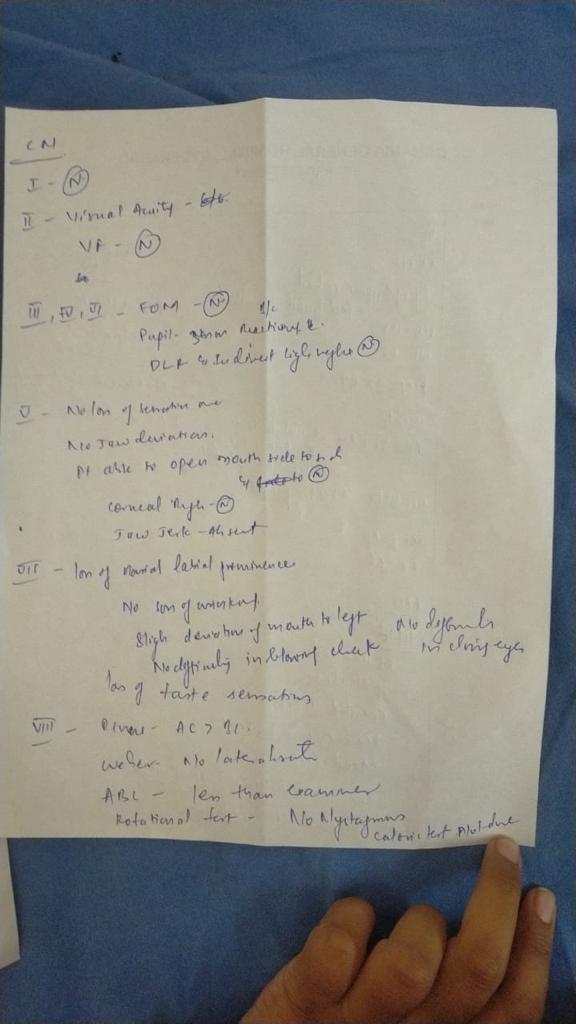 CN
I - N
II - Visual Acuity - 6/6.
VF - N
III, IV, VI - EOM - N B/L
Pupil- 3mm Reacting
DLR & Indirect light reflex N
V - No loss of sensation
No Jaw deviation.
Pt able to open mouth side to side
& N
corneal - N
Jaw Jerk - Absent
VII - loss of Nasal labial prominence
No loss of
Sligh deviation of mouth to left No difficulty
No difficulty in blowing cheek in closing eyes
loss of taste sensations
VIII - Rinnes - AC > BC.
Weber - No lateralisation
ABC - less than examiner
Rotational test - No Nystagmus
Caloric test Not done